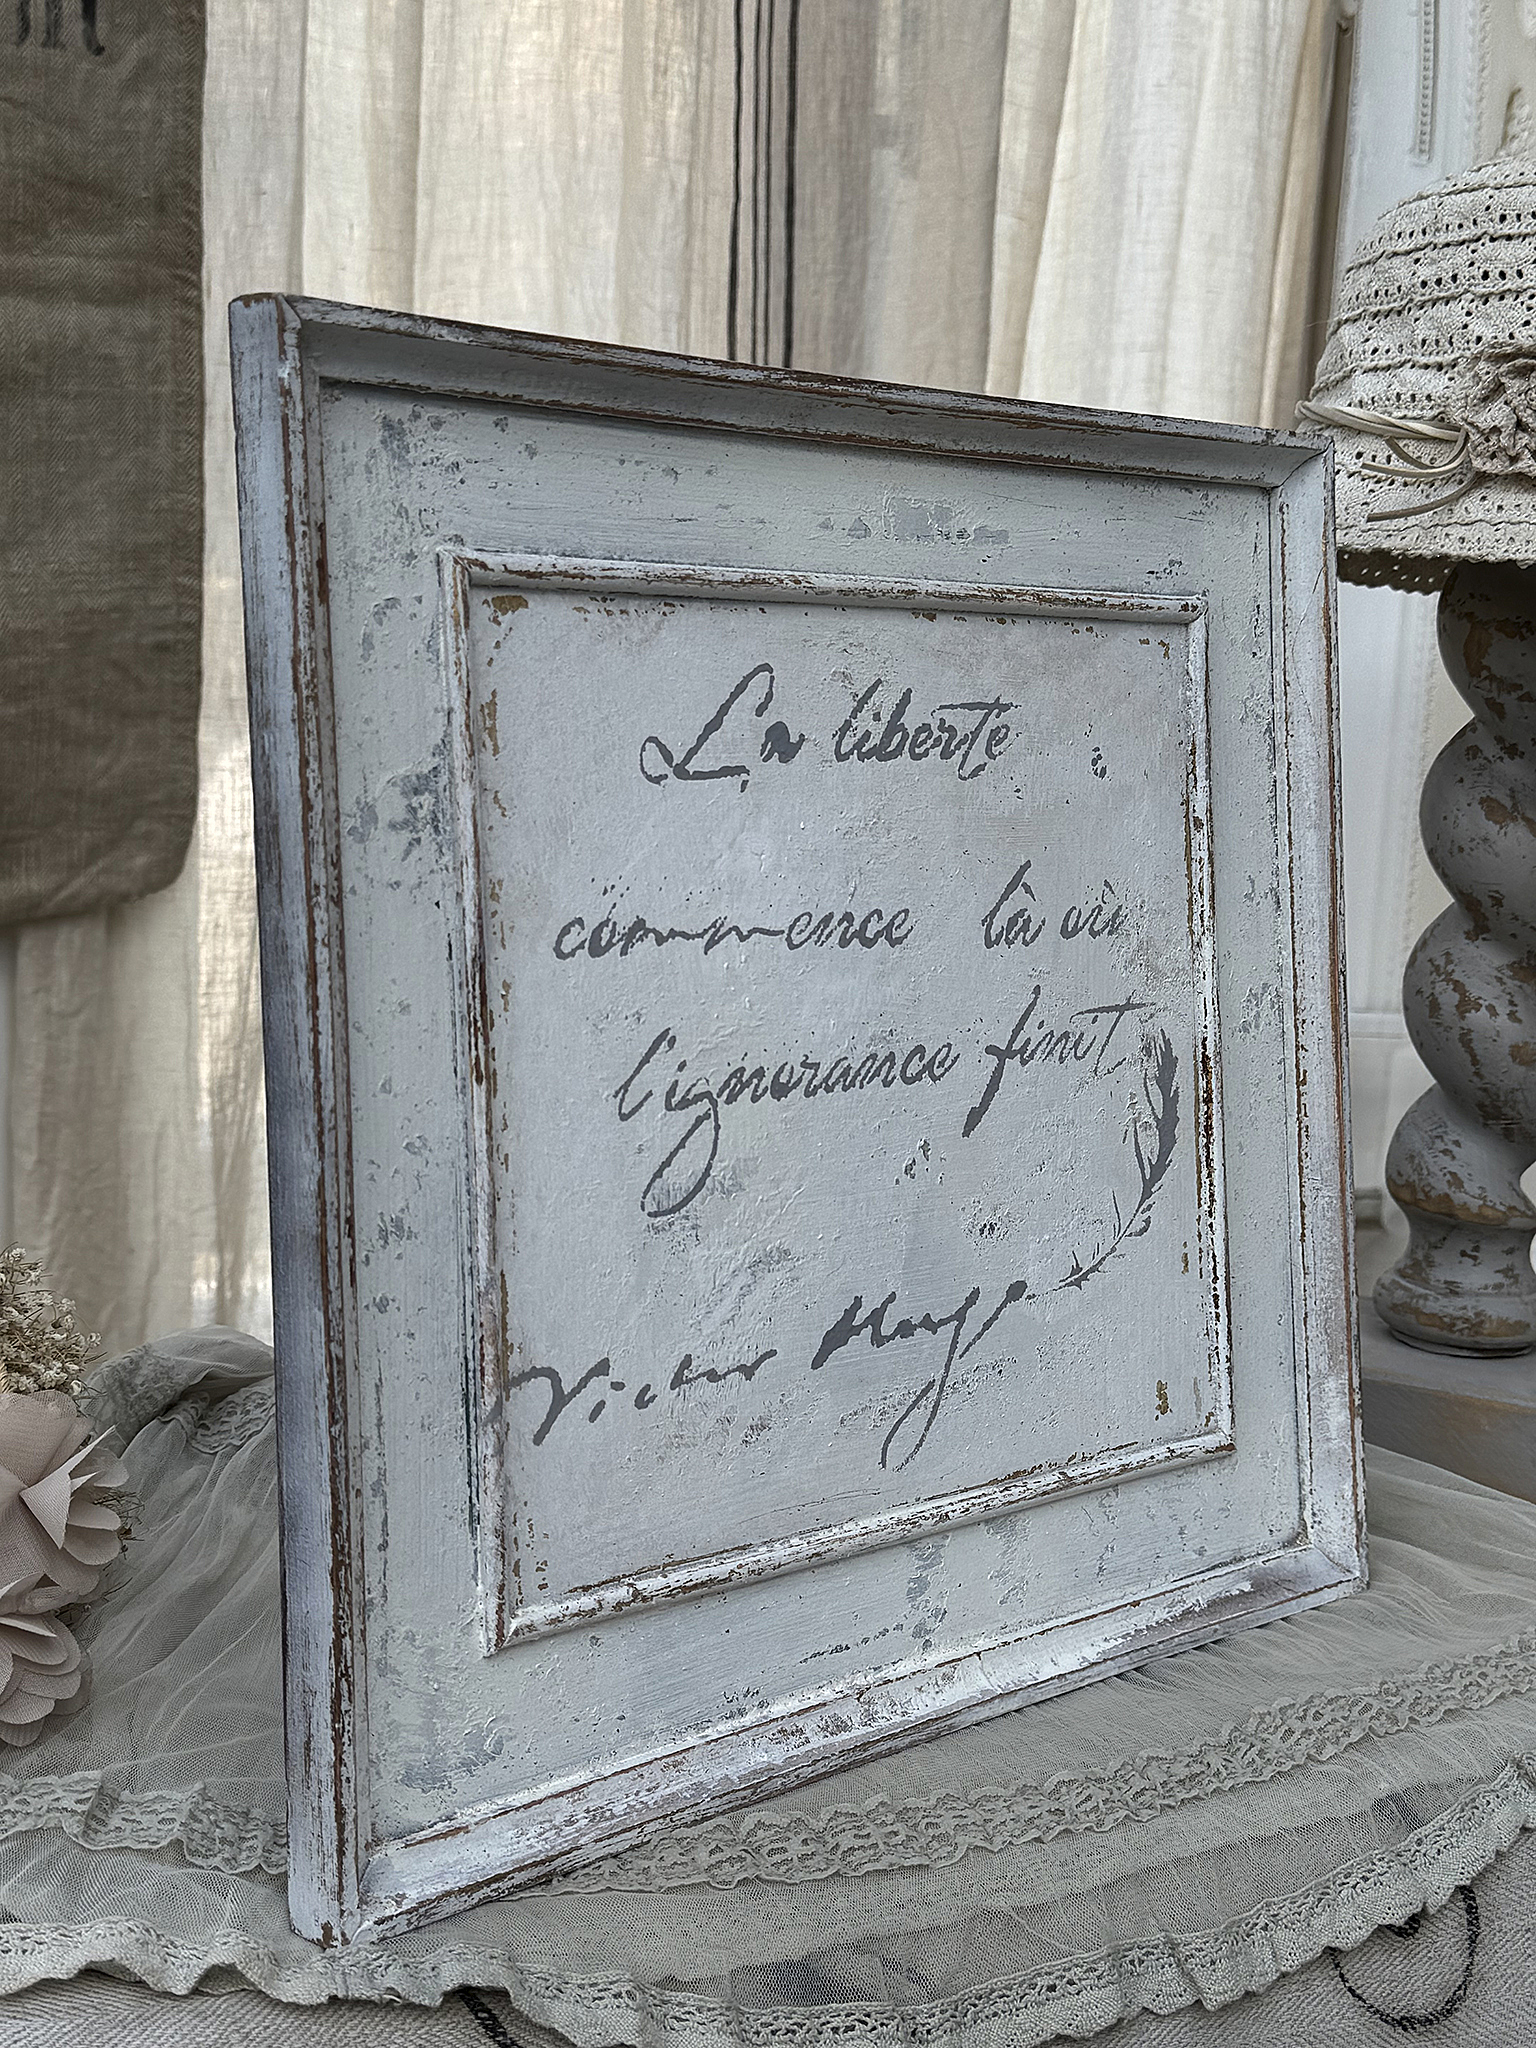 La liberte
commence là où
l'ignorance finit
Victor Hugo